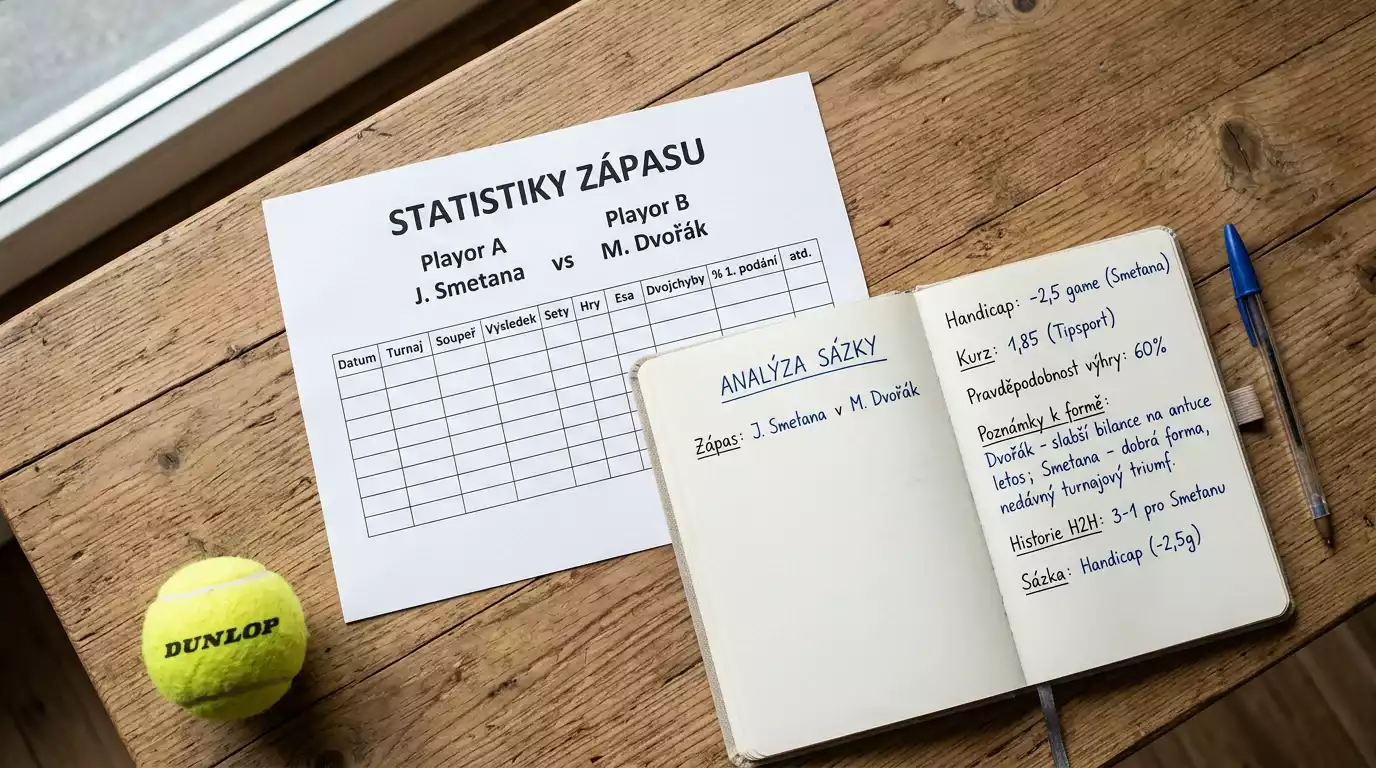 STATISTIKY ZÁPASU
Playor A
J. Smetana
vs
Playor B
M. Dvořák
Datum Turnaj Soupeř Výsledek Sety Hry Esa Dvojchyby % 1. podání atd.
ANALÝZA SÁZKY
Zápas: J. Smetana v M. Dvořák
Handicap: -2,5 game (Smetana)
Kurz: 1,85 (Tipsport)
Pravděpodobnost výhry: 60%
Poznámky k formě:
Dvořák - slabší bilance na antuce
letos; Smetana - dobrá forma,
nedávný turnajový triumf.
Historie H2H: 3-1 pro Smetanu
Sázka: Handicap (-2,5g)
DUNLOP